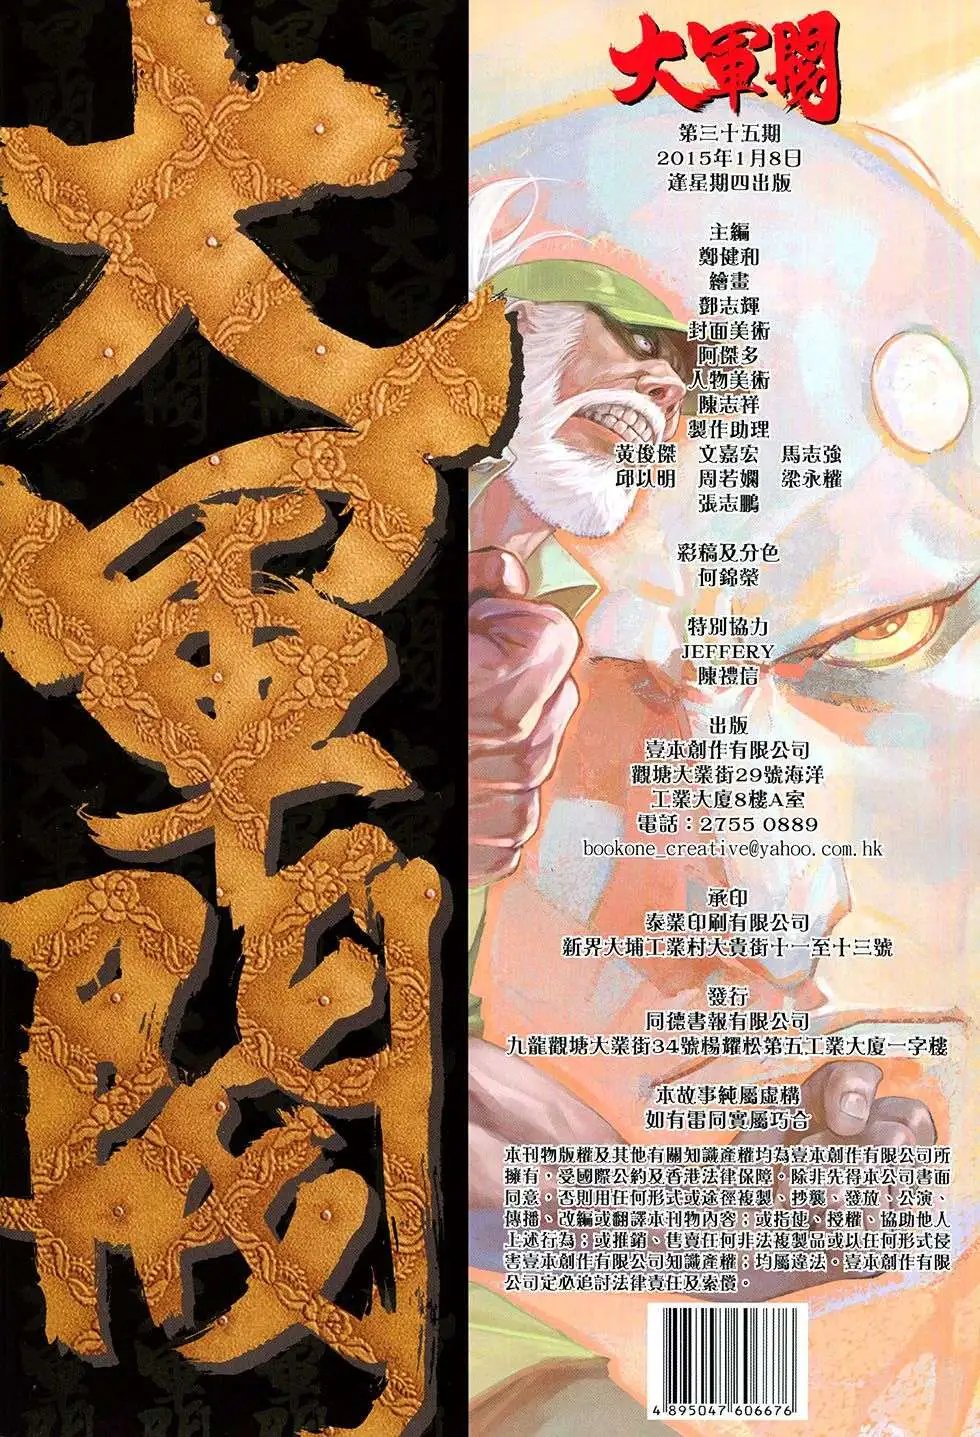 大軍閥
大軍閥
第三十五期
2015年1月8日
逢星期四出版
主編
鄭健和
繪畫
鄧志輝
封面美術
阿傑多
人物美術
陳志祥
製作助理
黃俊傑 文嘉宏 馬志強
邱以明 周若嫻 梁永權
張志鵬
彩稿及分色
何錦榮
特別協力
JEFFERY
陳禮信
出版
壹本創作有限公司
觀塘大業街29號海洋
工業大廈8樓A室
電話：2755 0889
bookone_creative@yahoo.com.hk
承印
泰業印刷有限公司
新界大埔工業村大貴街十一至十三號
發行
同德書報有限公司
九龍觀塘大業街34號楊耀松第五工業大廈一字樓
本故事純屬虛構
如有雷同實屬巧合
本刊物版權及其他有關知識產權均為壹本創作有限公司所
擁有，受國際公約及香港法律保障。除非先得本公司書面
同意，否則用任何形式或途徑複製、抄襲、發放、公演、
傳播、改編或翻譯本刊物內容；或指使、授權、協助他人
上述行為；或推銷、售賣任何非法複製品或以任何形式侵
害壹本創作有限公司知識產權；均屬違法。壹本創作有限
公司定必追討法律責任及索償。
4 895047 606676